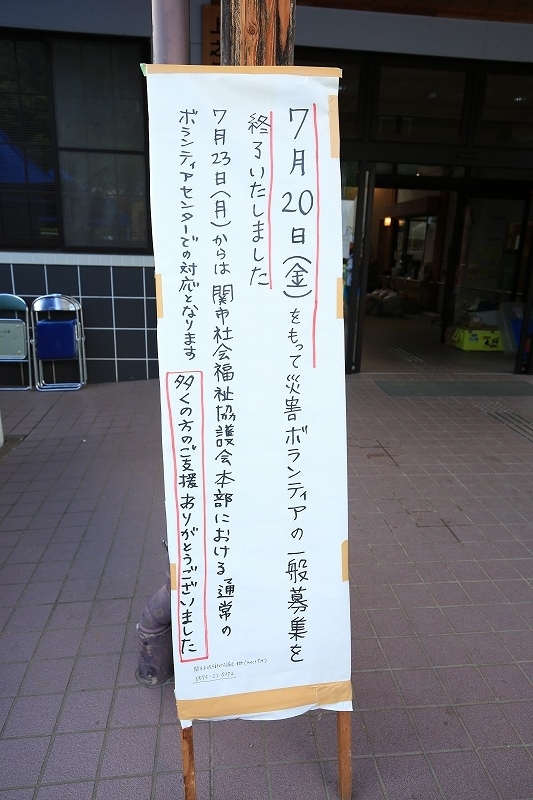 7月20日(金)をもって災害ボランティアの一般募集を
終了いたしました
7月23日(月)からは関市社会福祉協議会本部における通常の
ボランティアセンターでの対応となります
多くの方のご支援ありがとうございました